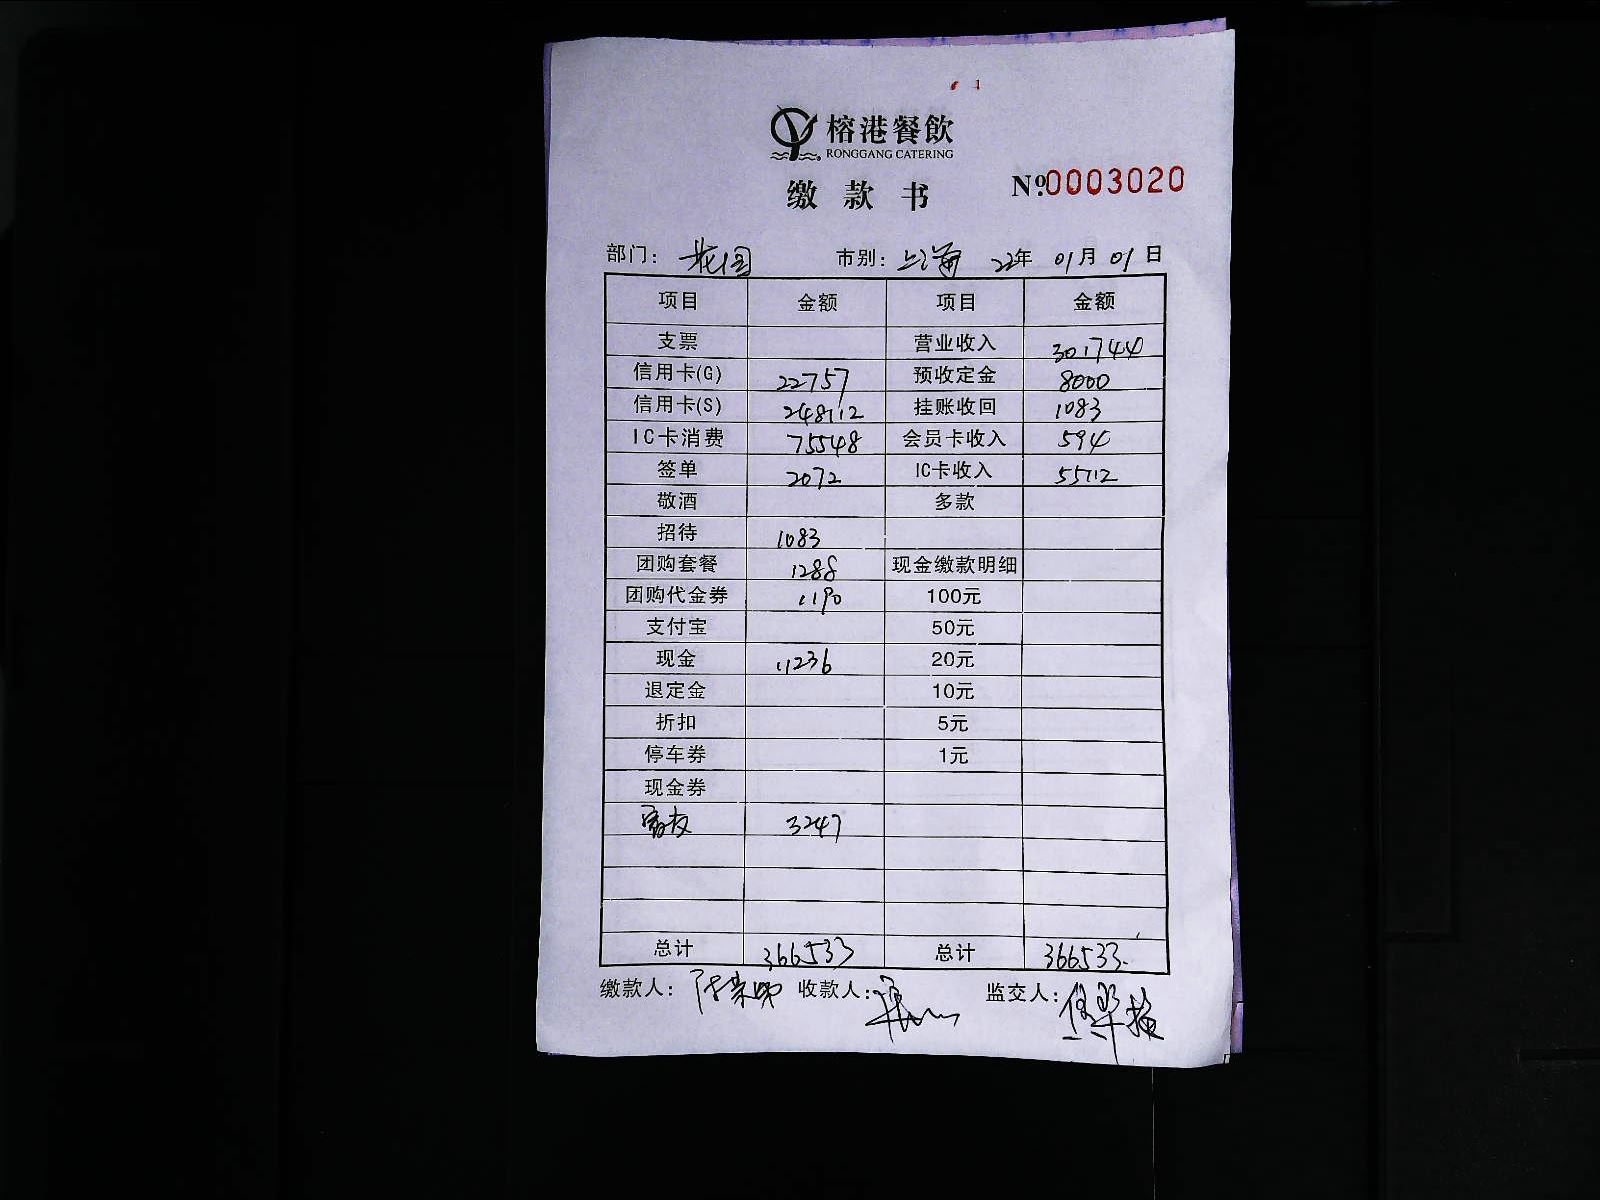 1
榕港餐飲
RONGGANG CATERING
缴款书 №0003020
部门: 花园 市别: 上海 22年 01月 01日
项目 金额 项目 金额
支票 营业收入 301744
信用卡(G) 22757 预收定金 8000
信用卡(S) 248112 挂账收回 1083
IC卡消费 75548 会员卡收入 594
签单 2072 IC卡收入 55112
敬酒 多款
招待 1083
团购套餐 1288 现金缴款明细
团购代金券 1190 100元
支付宝 50元
现金 11236 20元
退定金 10元
折扣 5元
停车券 1元
现金券
3247
总计 366533 总计 366533
缴款人: 收款人: 监交人: